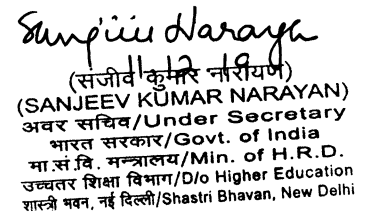 Sanjeev Narayan
11.12.19
(संजीव कुमार नारायण)
(SANJEEV KUMAR NARAYAN)
अवर सचिव/Under Secretary
भारत सरकार/Govt. of India
मा.सं.वि. मन्त्रालय/Min. of H.R.D.
उच्चतर शिक्षा विभाग/D/o Higher Education
शास्त्री भवन, नई दिल्ली/Shastri Bhavan, New Delhi